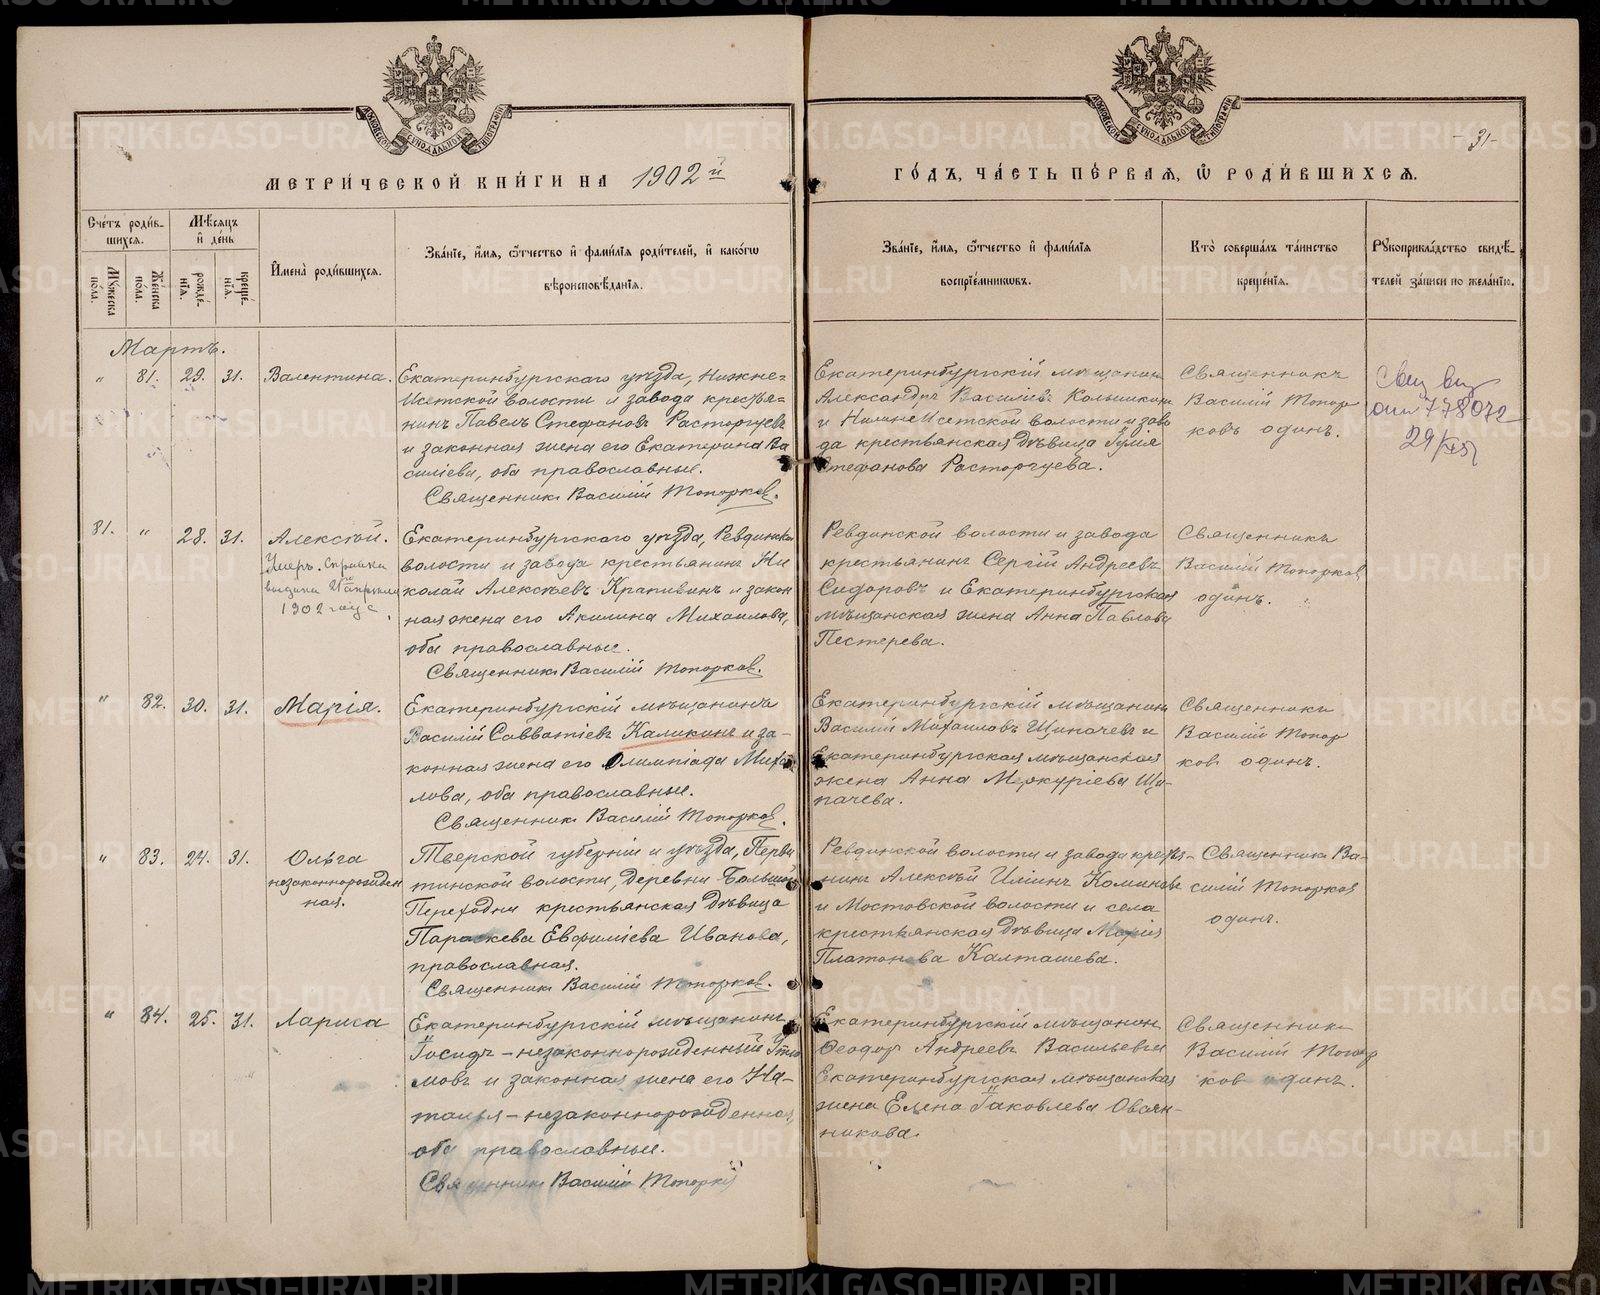 МЕТРИ́ЧЕСКОЙ КНИ́ГИ НА 1902й
ГО́ДЪ, ЧА́СТЬ ПЕ́РВАЯ, Ѽ РОДИ́ВШИХСЯ.
-31-
МОСКОВСКОЙ СѴНОДАЛЬНОЙ ТИПОГРАФІИ
МОСКОВСКОЙ СѴНОДАЛЬНОЙ ТИПОГРАФІИ
Сче́тъ роди́в-
шихся.
Мѣ́сяцъ
и҆ де́нь
Мꙋ́жеска по́ла.
Же́нска по́ла.
рожде́-
нїя.
креще́-
нїя.
И҆мена̀ роди́вшихся.
Зва́нїе, и҆́мя, ѻ҆́тчество и҆ фами́лїя роди́телей, и҆ како́гѡ
вѣроисповѣ́данїя.
Зва́нїе, и҆́мя, ѻ҆́тчество и҆ фами́лїя
воспрїе́мникѡвъ.
Кто̀ соверша́лъ та́инство
креще́нїя.
Рꙋкоприкла́дство свидѣ́-
телей за́писи по жела́нїю.
Мартъ.
„ 81. 29. 31. Валентина.
Екатеринбургскаго уѣзда, Нижне-
Исетской волости и завода крестья-
нинъ Павелъ Стефановъ Расторгуевъ
и законная жена его Екатерина Ва
силіева, оба православные.
Священникъ Василій Топорков.
Екатеринбургскій мѣщанинъ
Александръ Василіевъ
и НижнеИсетской волости и заво
да крестьянская дѣвица
Стефанова Расторгуева.
Священникъ
Василій Топор
ковъ одинъ.
778072
29
81. „ 28. 31. Алексѣй.
Умеръ. Справка
выдана
1902 года.
Екатеринбургского уѣзда, Ревдинской
волости и завода крестьянинъ Ни
колай Алексѣевъ Крапивинъ и закон
ная жена его Акилина Михаилова,
оба православные.
Священникъ Василій Топорков.
Ревдинской волости и завода
крестьянинъ Сергій Андреевъ
Сидоровъ и Екатеринбургская
мѣщанская жена Анна Павлова
Пестерева.
Священникъ
Василій Топорков
одинъ.
„ 82. 30. 31. Марія.
Екатеринбургскій мѣщанинъ
Василій Савватіевъ Каликинъ и за-
конная жена его Олимпіада Михаи
лова, оба православные.
Священникъ Василій Топорков.
Екатеринбургскій мѣщанинъ
Василій Михаиловъ Щипачевъ и
Екатеринбургская мѣщанская
жена Анна Меркуріева Щи-
пачева.
Священникъ
Василій Топор
ков одинъ.
„ 83. 24. 31. Ольга
незаконнорожден
ная.
Тверской губерніи и уѣзда, Перви
тинской волости, деревни Большой
Переходни крестьянская дѣвица
Параскева Евфиміева Иванова,
православная.
Священникъ Василій Топорков.
Ревдинской волости и завода крестья-
нинъ Алексѣй Иліинъ
и Мостовской волости и села
крестьянская дѣвица Марія
Платонова Калташева.
Священникъ Ва-
силій Топорков
одинъ.
„ 84. 25. 31. Лариса
Екатеринбургскій мѣщанинъ
Іосифъ - незаконнорожденный
мовъ и законная жена его На-
талья - незаконнорожденная,
оба православные.
Священникъ Василій Топорков
Екатеринбургскій мѣщанин
Ѳеодоръ Андреевъ Васильевъ и
Екатеринбургская мѣщанская
жена Елена Іаковлева Овчин-
никова.
Священникъ
Василій Топор
ков одинъ.
METRIKI.GASO-URAL.RU